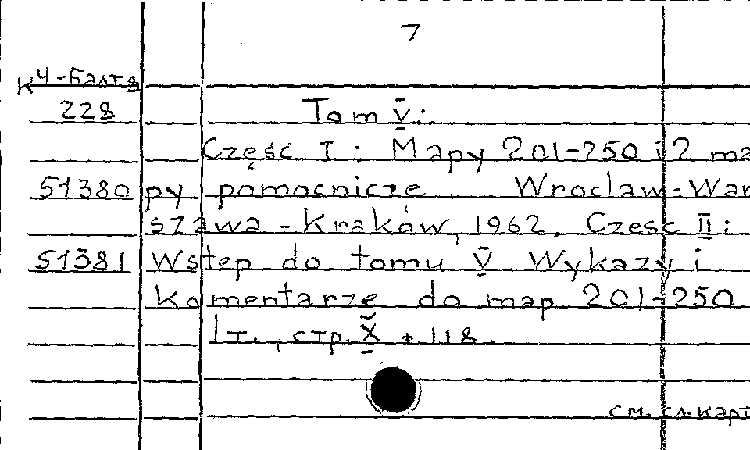 7
Ч-Балтя
228 Tom V:
Część I: Mapy 201-250 i 2 ma
51380 py pomocnicze Wroclaw-War
szawa-Kraków, 1962. Czesc II:
51381 Wstep do tomu V Wykazy i
Komentarze do map 201-250
1т., стр. X + 118
см. сл. карт